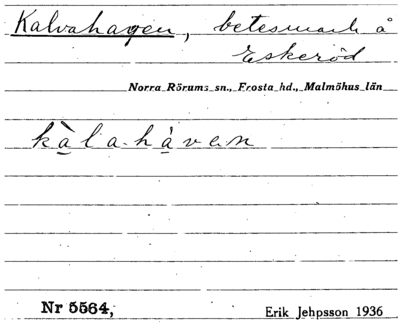 Kalvahagen, betesmark å
Eskeröd
Norra Rörums sn., Frosta hd., Malmöhus län
kàlahàvan
Nr 5564,
Erik Jehpsson 1936